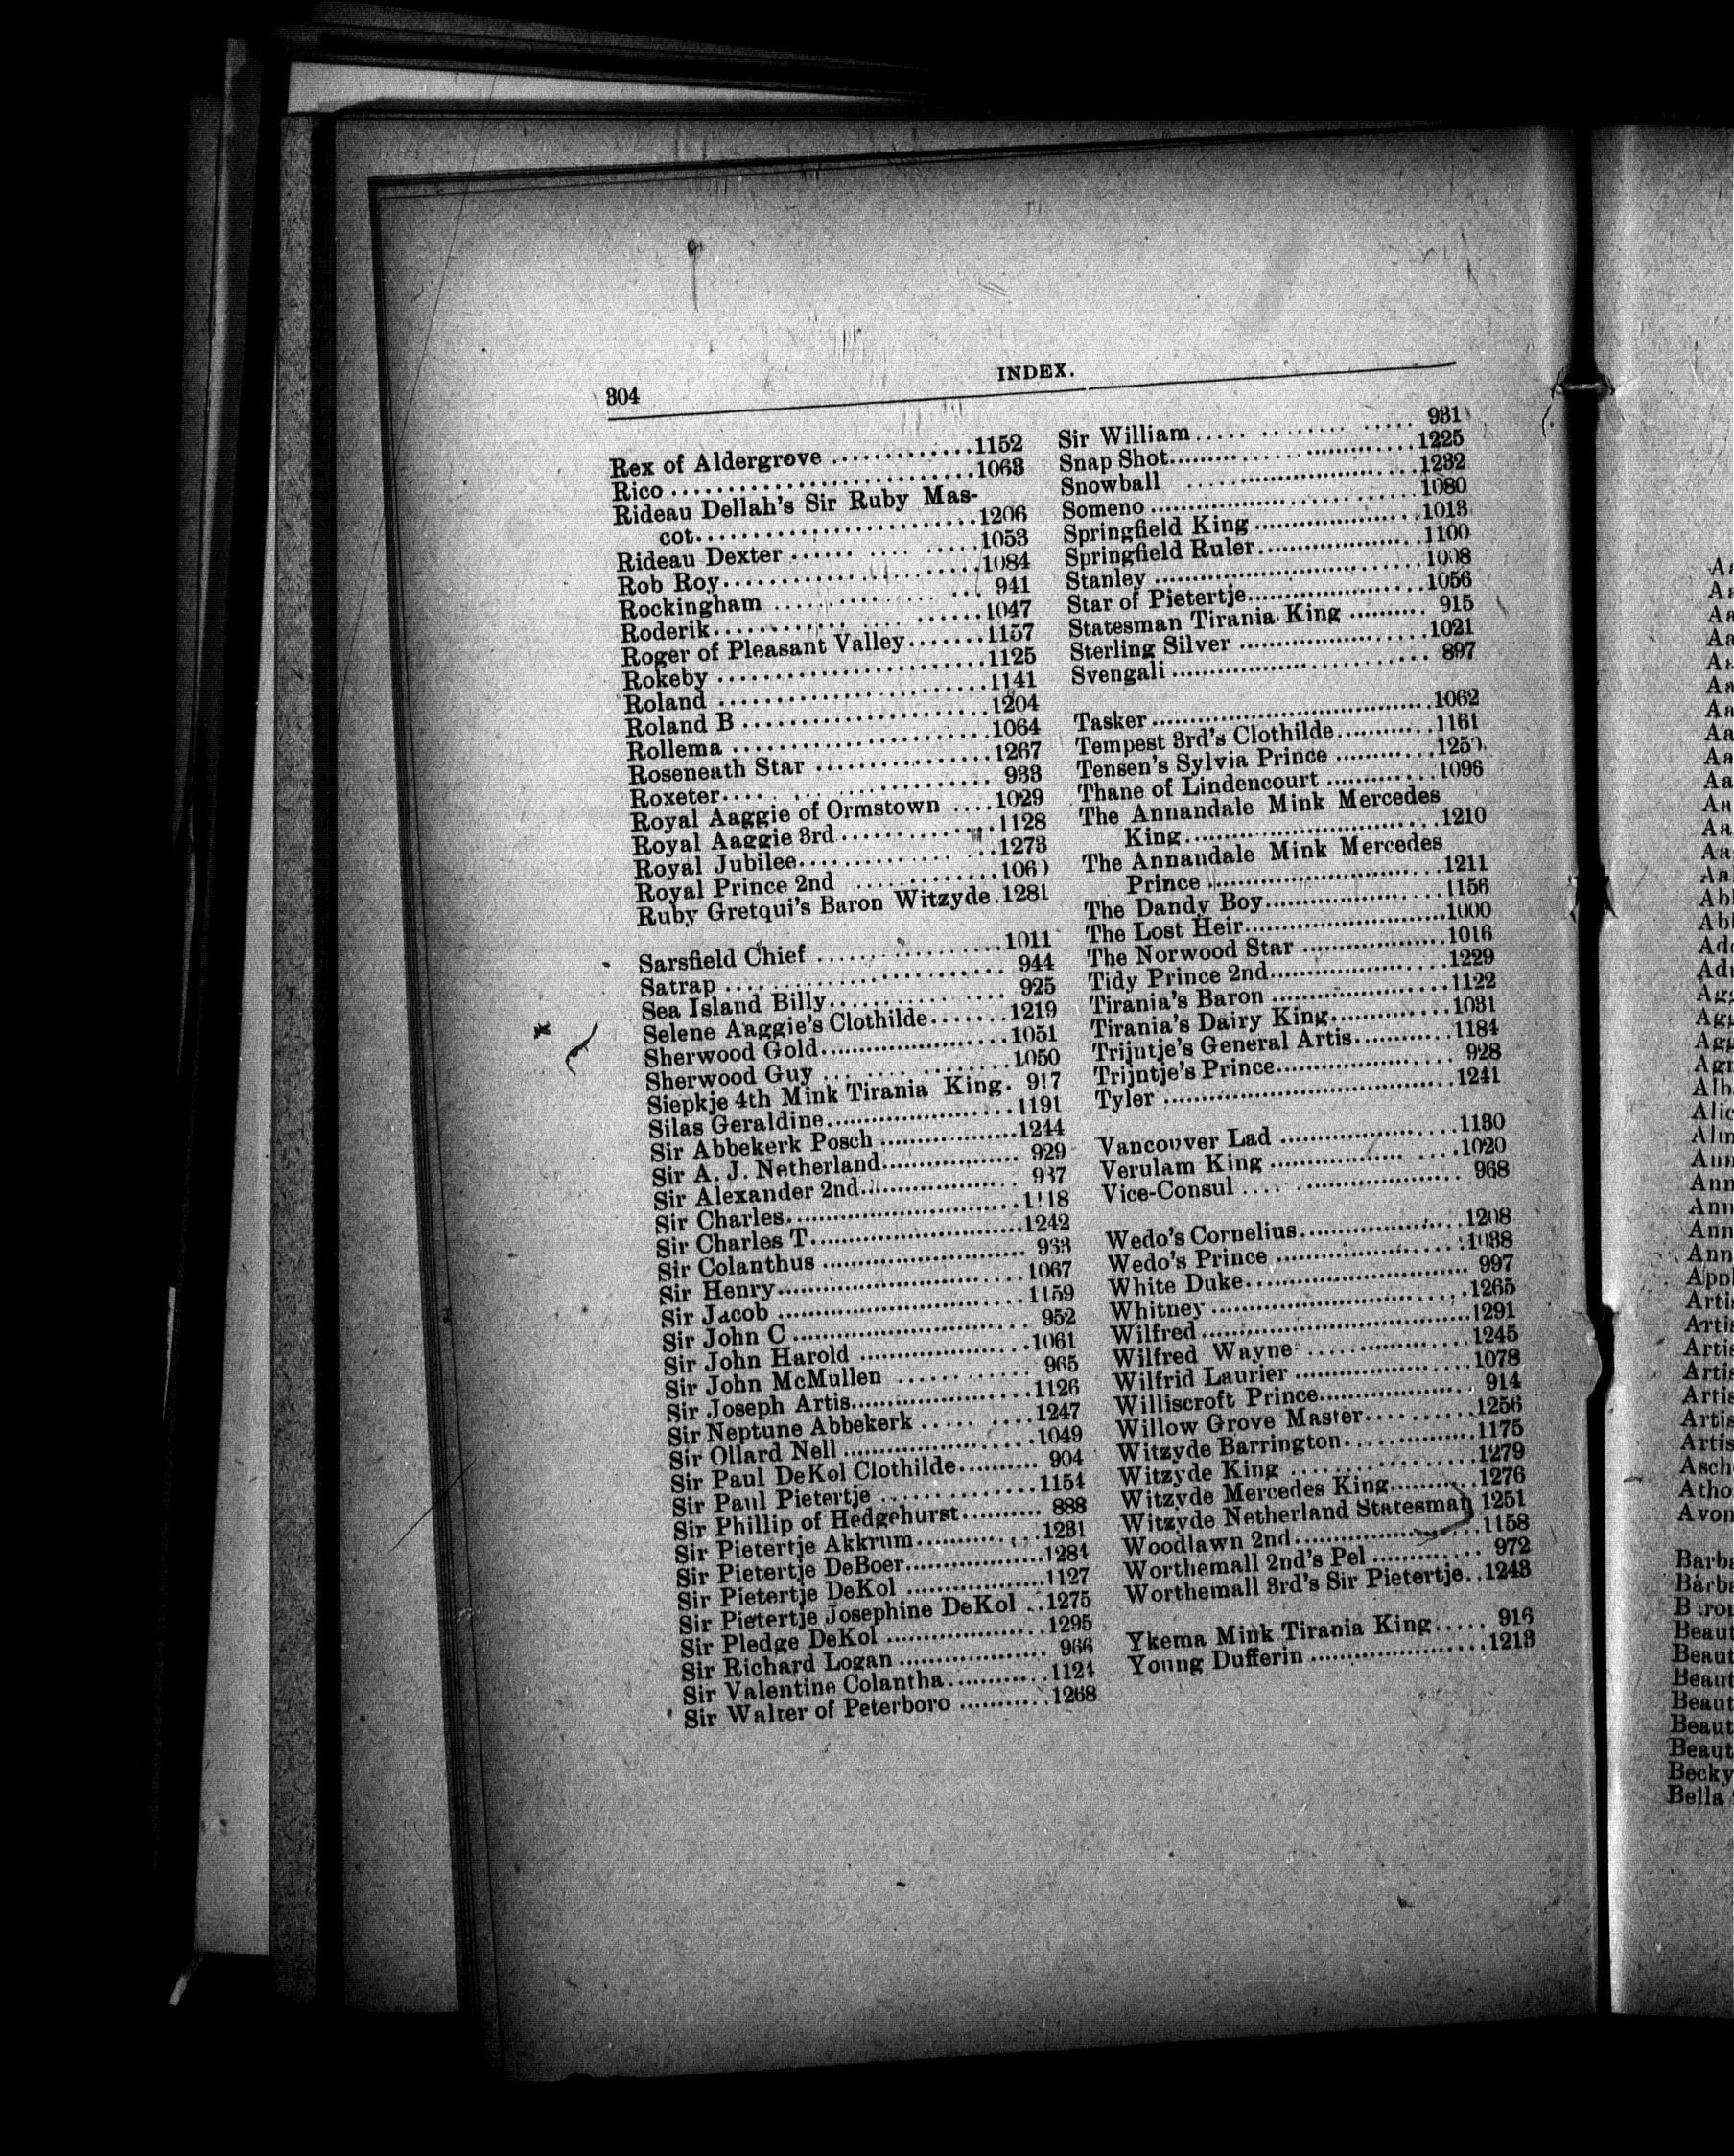 304
INDEX.
Rex of Aldergrove .............1152
Rico ...........................1063
Rideau Dellah's Sir Ruby Mas-
cot.........................1206
Rideau Dexter ...... .... .....1053
Rob Roy.......................1084
Rockingham .................. 941
Roderik........................1047
Roger of Pleasant Valley.......1157
Rokeby ........................1125
Roland ........................1141
Roland B ......................1204
Rollema .......................1064
Roseneath Star ................1267
Roxeter....................... 933
Royal Aaggie of Ormstown ....1029
Royal Aaggie 3rd..............1128
Royal Jubilee..................1273
Royal Prince 2nd .............106
Ruby Gretqui's Baron Witzyde.1281
Sarsfield Chief .................1011
Satrap ......................... 944
Sea Island Billy................ 925
Selene Aaggie's Clothilde.......1219
Sherwood Gold.................1051
Sherwood Guy .................1050
Siepkje 4th Mink Tirania King. 917
Silas Geraldine.................1191
Sir Abbekerk Posch.............1244
Sir A. J. Netherland............ 929
Sir Alexander 2nd.............. 937
Sir Charles.....................1118
Sir Charles T...................1242
Sir Colanthus .................. 933
Sir Henry......................1067
Sir Jacob ......................1159
Sir John C ..................... 952
Sir John Harold ................1061
Sir John McMullen ............ 965
Sir Joseph Artis.................1126
Sir Neptune Abbekerk ..... ....1247
Sir Ollard Nell ..................1049
Sir Paul DeKol Clothilde.......... 904
Sir Paul Pietertje ...............1154
Sir Phillip of Hedgehurst.......... 888
Sir Pietertje Akkrum............1231
Sir Pietertje DeBoer.............1284
Sir Pietertje DeKol .............1127
Sir Pietertje Josephine DeKol ..1275
Sir Pledge DeKol ...............1295
Sir Richard Logan .............. 966
Sir Valentine Colantha..........1124
Sir Walter of Peterboro ..........1268
Sir William..... ......... ..... 931
Snap Shot......................1225
Snowball ......................1232
Someno ........................1080
Springfield King ................1013
Springfield Ruler................1100
Stanley ........................1008
Star of Pietertje.................1056
Statesman Tirania King .......... 915
Sterling Silver ..................1021
Svengali ....................... 897
Tasker.........................1062
Tempest 3rd's Clothilde..........1161
Tensen's Sylvia Prince ..........125
Thane of Lindencourt ...........1096
The Annandale Mink Mercedes
King........................1210
The Annandale Mink Mercedes
Prince......................1211
The Dandy Boy.................1156
The Lost Heir...................1000
The Norwood Star ..............1016
Tidy Prince 2nd................1229
Tirania's Baron .................1122
Tirania's Dairy King............1031
Trijntje's General Artis..........1184
Trijntje's Prince................. 928
Tyler ..........................1241
Vancouver Lad .................1130
Verulam King ..................1020
Vice-Consul ................... 968
Wedo's Cornelius...............1208
Wedo's Prince .................1038
White Duke.................... 997
Whitney .......................1265
Wilfred........................1291
Wilfred Wayne .................1245
Wilfrid Laurier .................1078
Williscroft Prince................ 914
Willow Grove Master...........1256
Witzyde Barrington.............1175
Witzyde King ..................1279
Witzyde Mercedes King..........1276
Witzyde Netherland Statesman 1251
Woodlawn 2nd.................1158
Worthemall 2nd's Pel ........... 972
Worthemall 3rd's Sir Pietertje..1243
Ykema Mink Tirania King..... 916
Young Dufferin .................1213